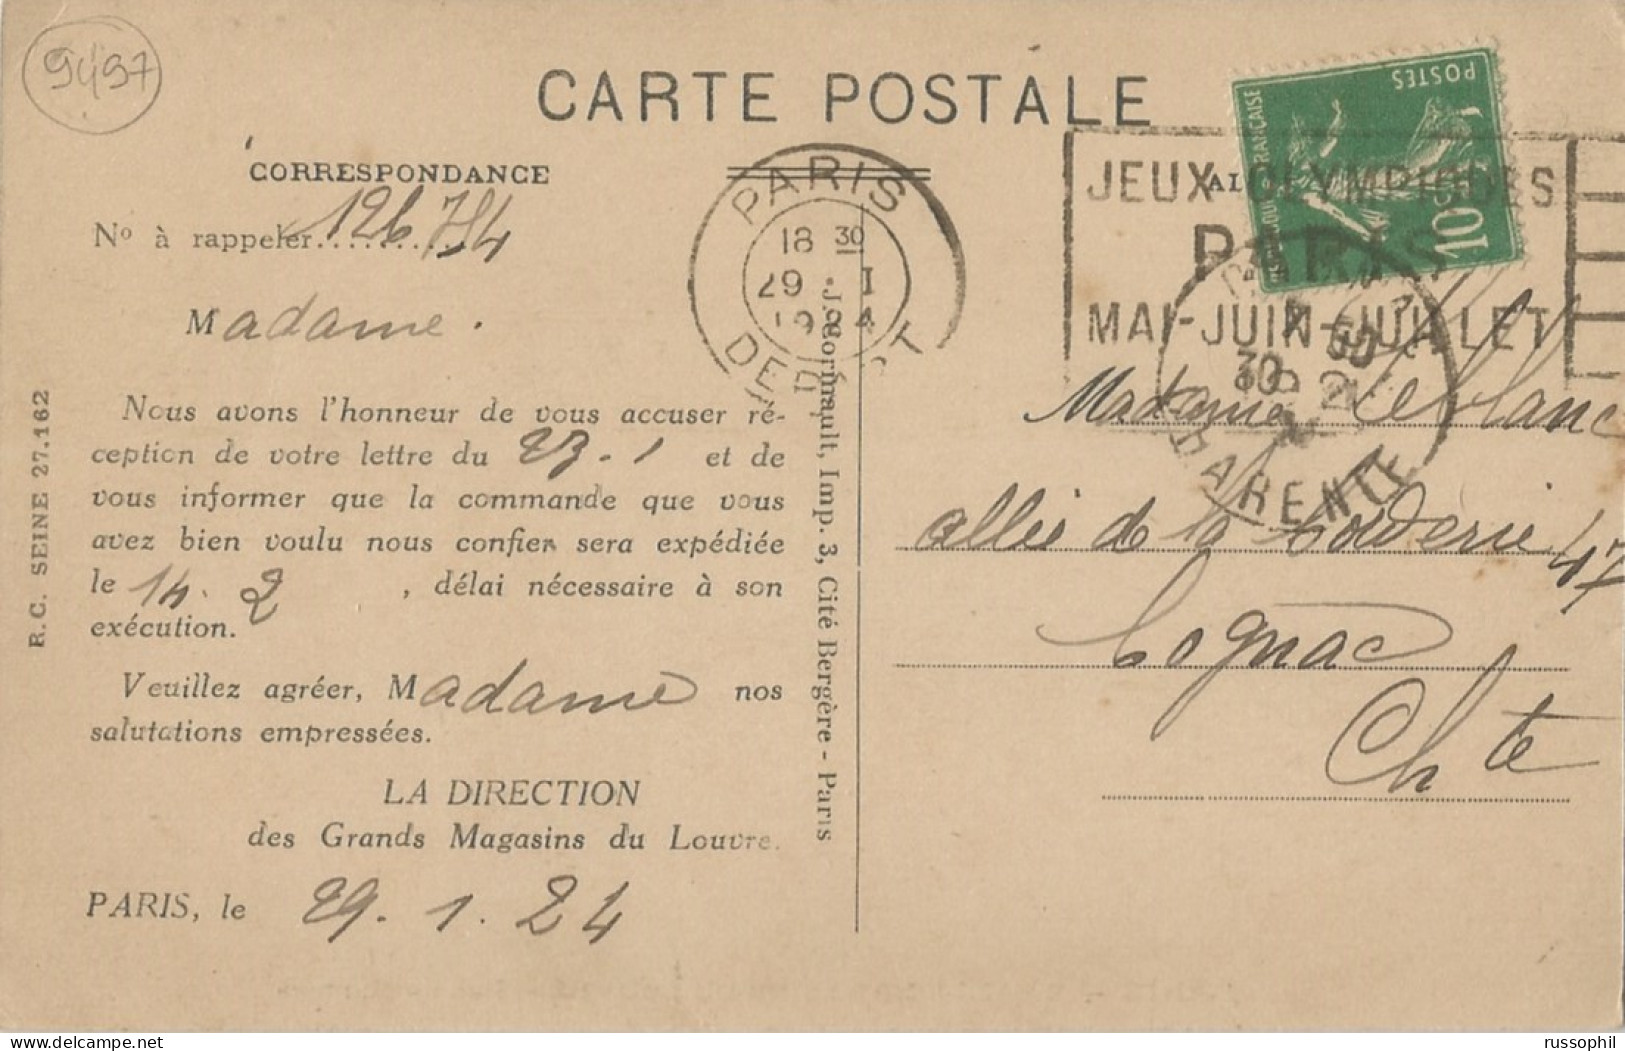 9497
CARTE POSTALE
CORRESPONDANCE
Nº à rappeler..........
126 754
Madame.
Nous avons l'honneur de vous accuser ré-
ception de votre lettre du 23.1 et de
vous informer que la commande que vous
avez bien voulu nous confier sera expédiée
le 14.2 , délai nécessaire à son
exécution.
Veuillez agréer, Madame nos
salutations empressées.
LA DIRECTION
des Grands Magasins du Louvre.
PARIS, le 29.1.24
R.C. SEINE 27.162
J. Cormault, Imp. 3, Cité Bergère - Paris
PARIS
18 30
29 I
1924
DEPART
JEUX OLYMPIQUES
PARIS
MAI-JUIN-JUILLET
POSTES
10
30
CHARENTE
Madame Leblanc
allée de la Corderie 47
Cognac
Chte
www.delcampe.net
russophil